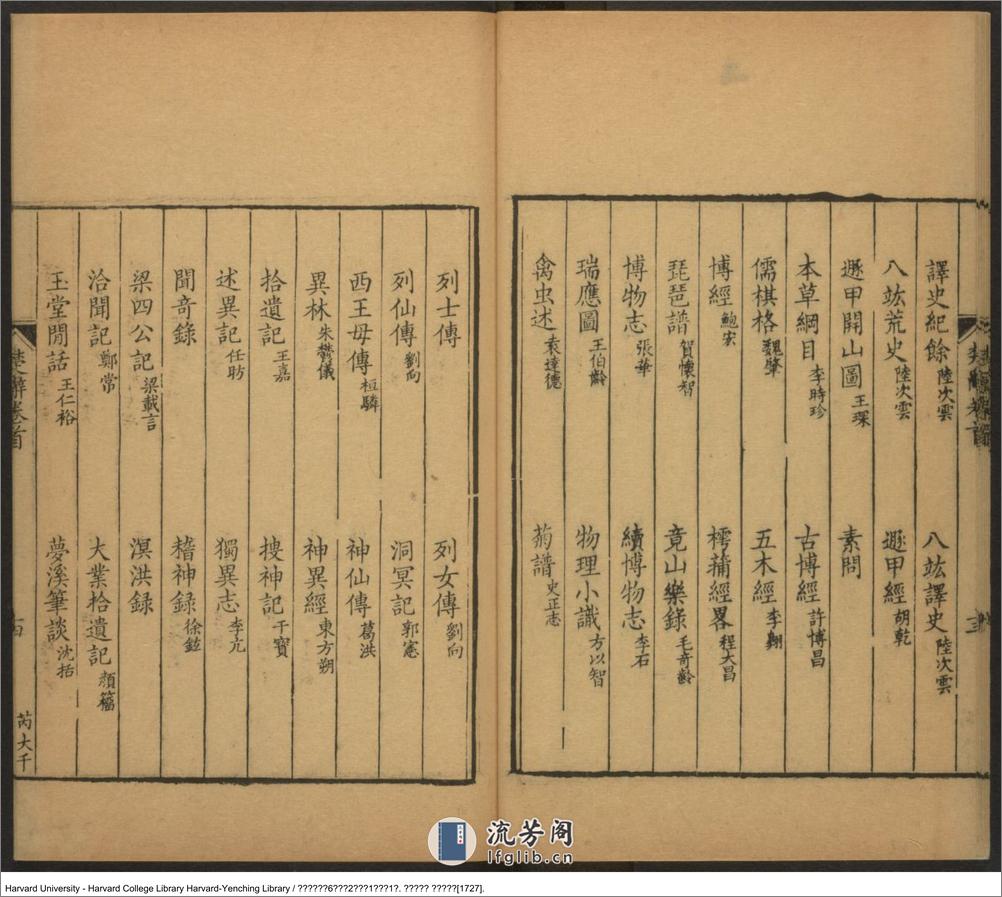 譯史紀餘 陸次雲 八竑譯史 陸次雲
八竑荒史 陸次雲 遯甲經 胡乾
遯甲開山圖 王琛 素問
本草綱目 李時珍 古博經 許博昌
儒棋格 魏肇 五木經 李翱
博經 鮑宏 樗蒱經畧 程大昌
琵琶譜 賀懷智 竟山樂錄 毛奇齡
博物志 張華 續博物志 李石
瑞應圖 王伯齡 物理小識 方以智
禽虫述 袁達德 菊譜 史正志
列士傳 列女傳 劉向
列仙傳 劉向 洞冥記 郭憲
西王母傳 桓驎 神仙傳 葛洪
異林 朱鬱儀 神異經 東方朔
拾遺記 王嘉 搜神記 干寶
述異記 任昉 獨異志 李亢
聞奇錄 稽神錄 徐鉉
梁四公記 梁載言 溟洪録
洽聞記 鄭常 大業拾遺記 顏籀
玉堂閒話 王仁裕 夢溪筆談 沈括
楚辭卷首
芮大千
流芳阁
lfglib.cn
Harvard University - Harvard College Library Harvard-Yenching Library / ??????6???2???1???1?. ????? ?????[1727].